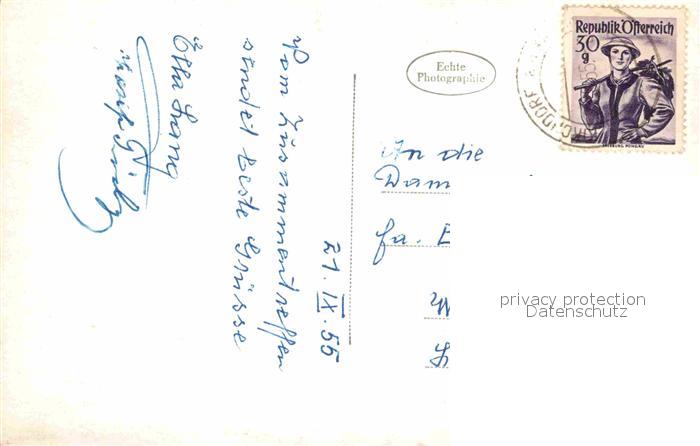 21. IX. 55
Vom Zusammentreffen
sendet beste Grüsse
Etta Lang
Echte
Photographie
Republik Österreich
30
g
SALZBURG, PONGAU
An die
Dam
fa. E
W
privacy protection
Datenschutz